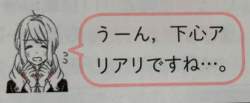 うーん，下心ア
リアリですね…。